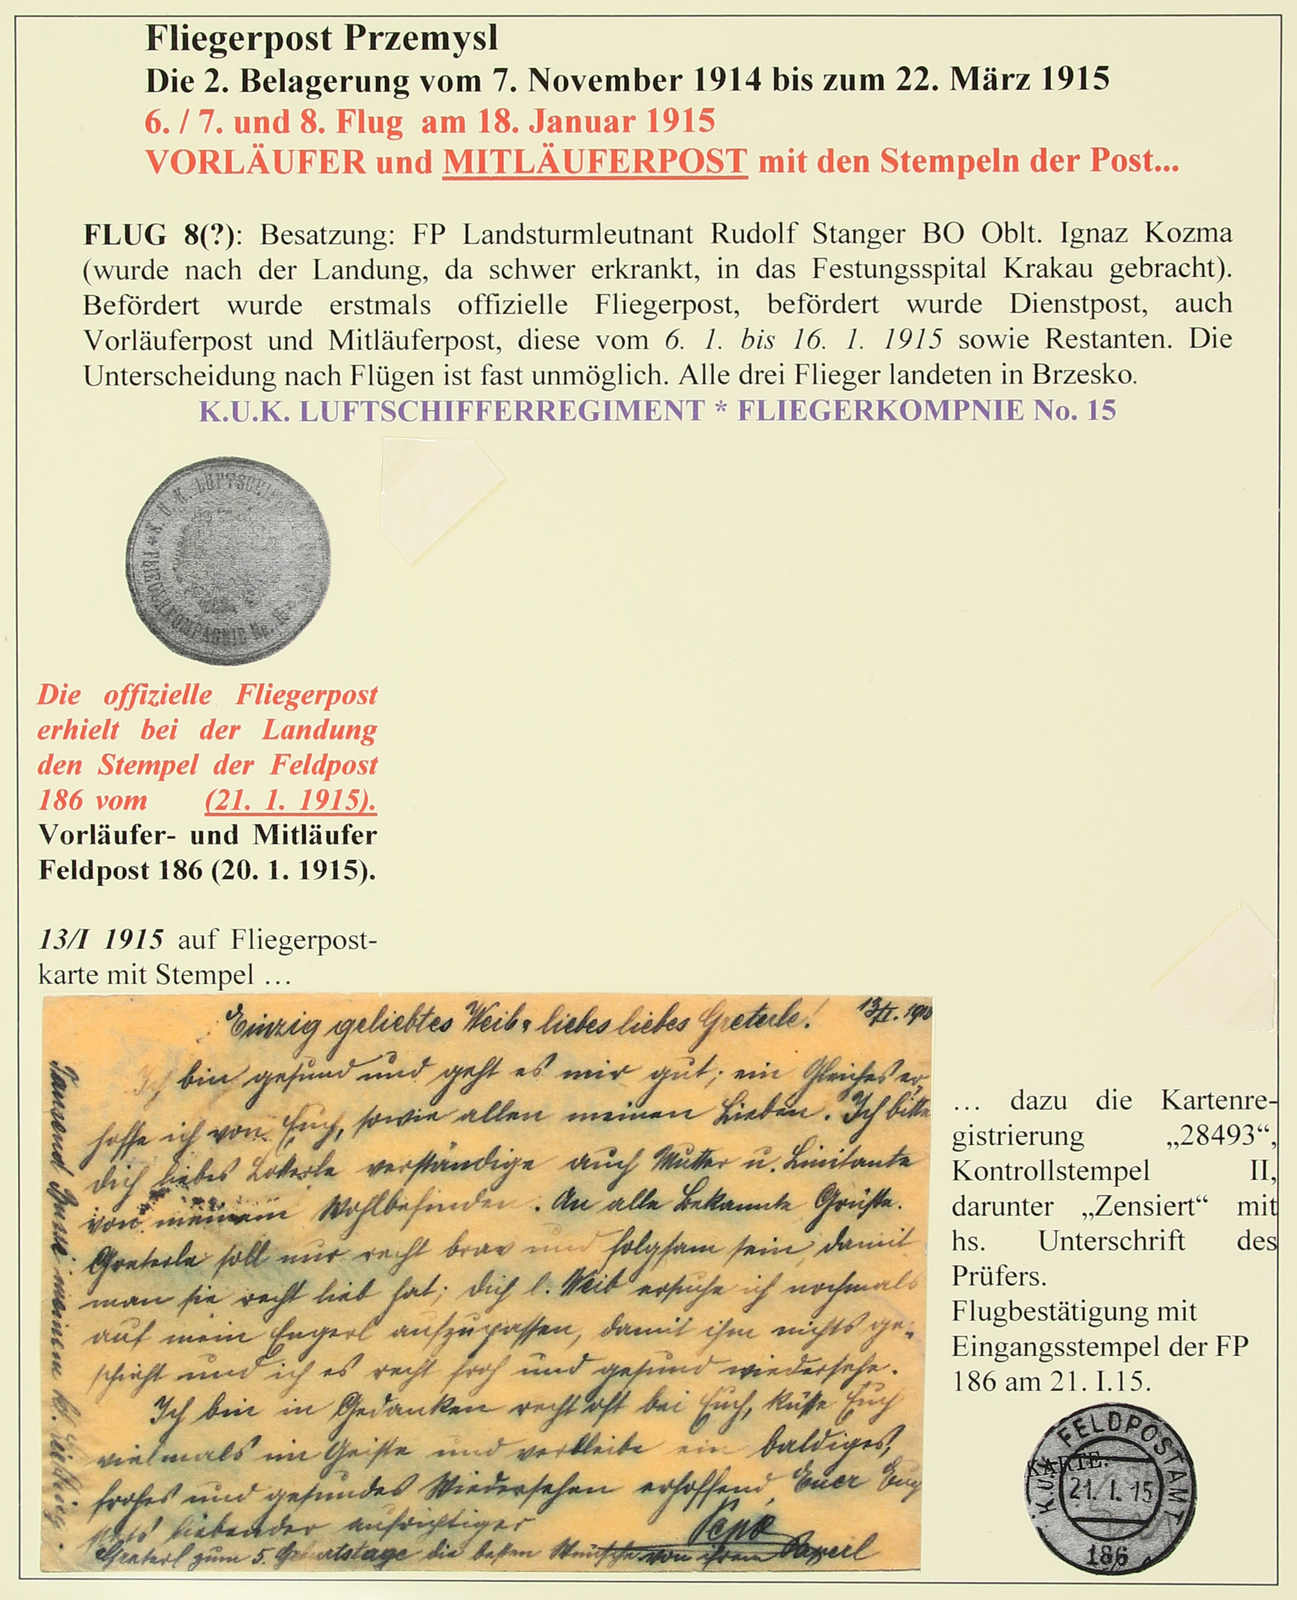 Fliegerpost Przemysl
Die 2. Belagerung vom 7. November 1914 bis zum 22. März 1915
6. / 7. und 8. Flug am 18. Januar 1915
VORLÄUFER und MITLÄUFERPOST mit den Stempeln der Post...
FLUG 8(?): Besatzung: FP Landsturmleutnant Rudolf Stanger BO Oblt. Ignaz Kozma
(wurde nach der Landung, da schwer erkrankt, in das Festungsspital Krakau gebracht).
Befördert wurde erstmals offizielle Fliegerpost, befördert wurde Dienstpost, auch
Vorläuferpost und Mitläuferpost, diese vom 6. 1. bis 16. 1. 1915 sowie Restanten. Die
Unterscheidung nach Flügen ist fast unmöglich. Alle drei Flieger landeten in Brzesko.
K.U.K. LUFTSCHIFFERREGIMENT * FLIEGERKOMPNIE No. 15
K. U. K. LUFTSCHIFF
FLIEGERKOMPAGNIE No. 15
Die offizielle Fliegerpost
erhielt bei der Landung
den Stempel der Feldpost
186 vom (21. 1. 1915).
Vorläufer- und Mitläufer
Feldpost 186 (20. 1. 1915).
13/I 1915 auf Fliegerpost-
karte mit Stempel …
13/I. 191
Einzig geliebtes Weib, liebes liebes Greterle!
Ich bin gesund und geht es mir gut; ein Gleiches er-
hoffe ich von Euch, sowie allen meinen Lieben. Ich bitte
dich liebes verständige auch Mutter u.
von meinem Wohlbefinden. An alle Bekannte Grüße.
Greterle soll nur recht brav und folgsam sein, damit
man sie recht lieb hat; dich l. Weib ersuche ich nochmals
auf mein Engerl aufzupassen, damit ihm nichts ge-
schieht und ich es recht froh und gesund wiedersehe.
Ich bin in Gedanken recht oft bei Euch, küsse Euch
vielmals im Geiste und verbleibe ein baldiges,
frohes und gesundes Wiedersehen erhoffend, Euer Euch
liebender aufrichtiger
Greterl zum 5. Geburtstage die besten Wünsche von ihrem
Tausend meinem
… dazu die Kartenre-
gistrierung „28493“,
Kontrollstempel II,
darunter „Zensiert“ mit
hs. Unterschrift des
Prüfers.
Flugbestätigung mit
Eingangsstempel der FP
186 am 21. I.15.
K.u.K. FELDPOSTAMT
KARTE.
21. I. 15
186